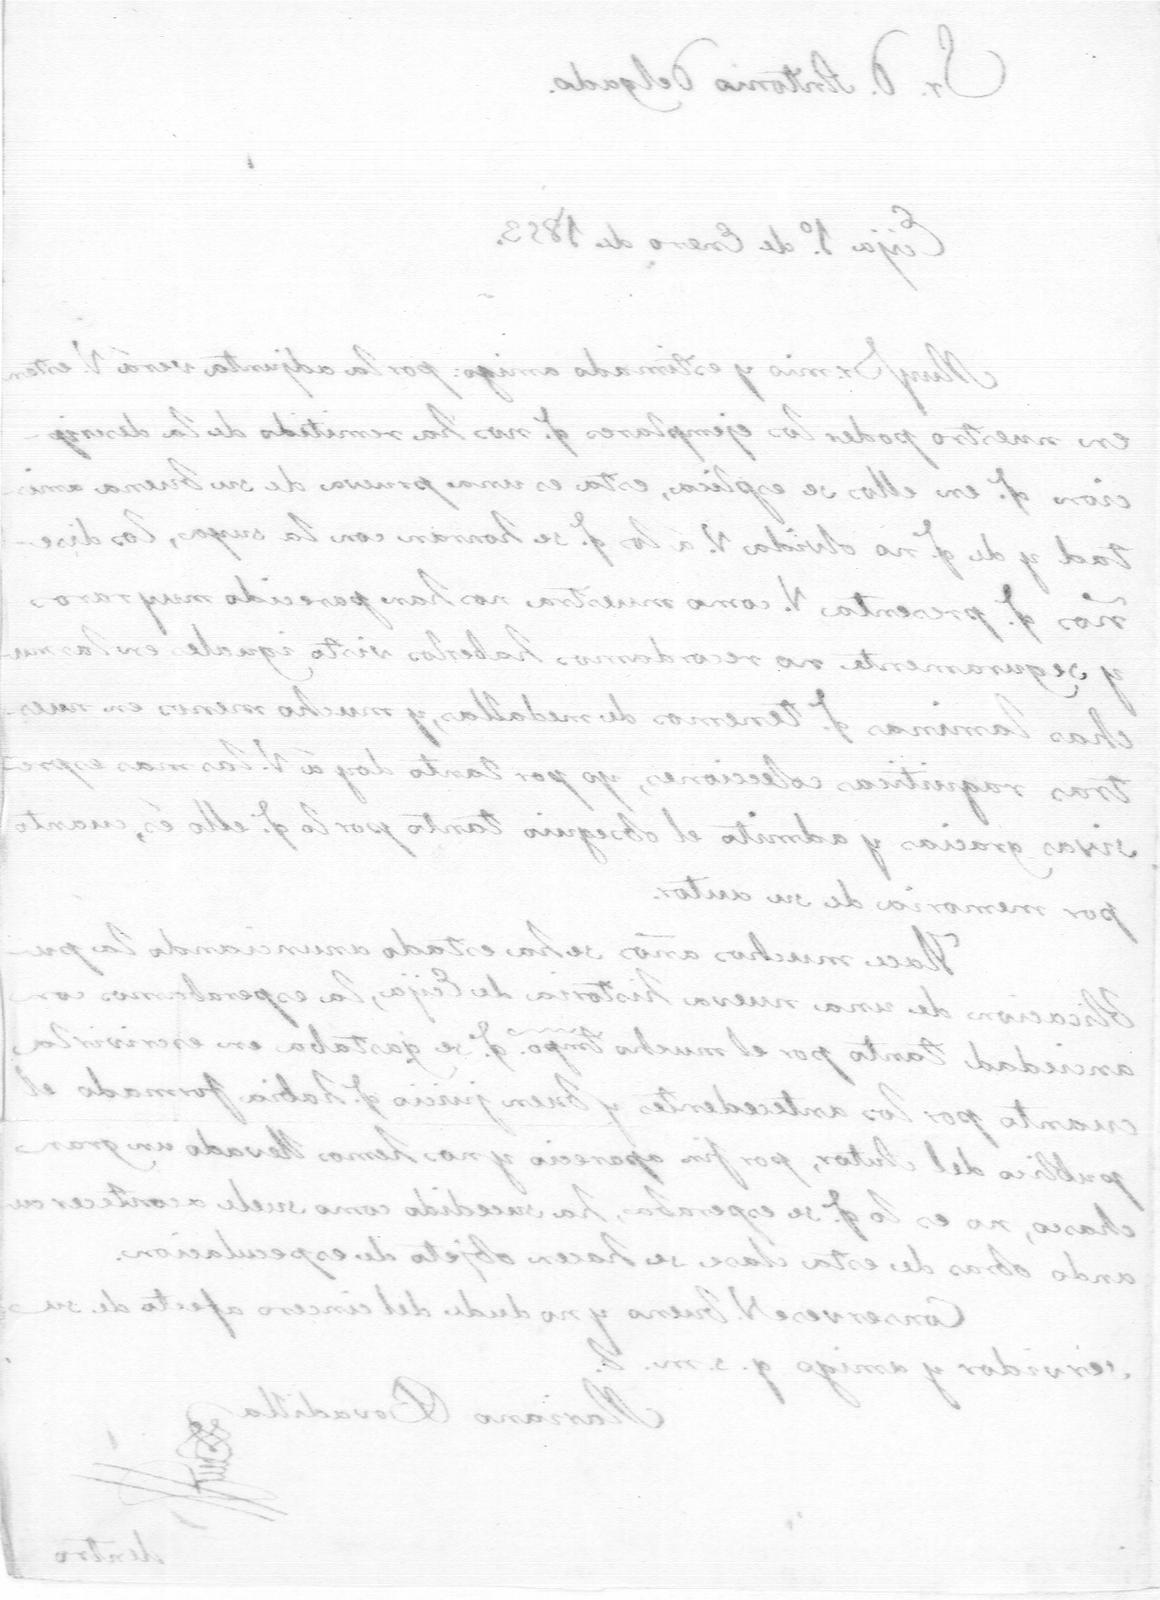 Sr. D. Antonio Delgado.
Ecija 1º. de Enero de 1853.
Muy Sr. mio y estimado amigo: por la adjunta verá V. estan
en nuestro poder los ejemplares q.e nos ha remitido de la descrip-
cion q.e en ellos se esplica, esta, es una prueva de su buena amis-
tad y de q.e no olvida V. á los q.e se honran con la suya, los dise-
ños q.e presenta V. como muestra nos han parecido muy raros
y seguramente no recordamos haberlos visto iguales en las mu-
chas laminas q.e tenemos de medallas, y mucho menos en nues-
tras raquiticas colecciones, yo por tanto doy á V. las mas espre-
sivas gracias y admito el obsequio tanto por lo q.e ello és, cuanto
por memoria de su autor.
Hace muchos años se ha estado anunciando la pu-
blicacion de una nueva historia de Ecija, la esperabamos con
anciedad tanto por el mucho tmpo. q.e se gastaba en escrivirla,
cuanto por los antecedentes y buen juicio q.e habia formado el
publico del Autor, por fin aparecio y nos hemos llevado un gran
chasco, no es lo q.e se esperaba, ha sucedido como suele acontecer cu
ando obras de esta clase se hacen objeto de especulacion.
Conservese V. bueno y no dude del cincero afecto de su
servidor y amigo q. s. m. b.
Mariano Bovadilla
dentro